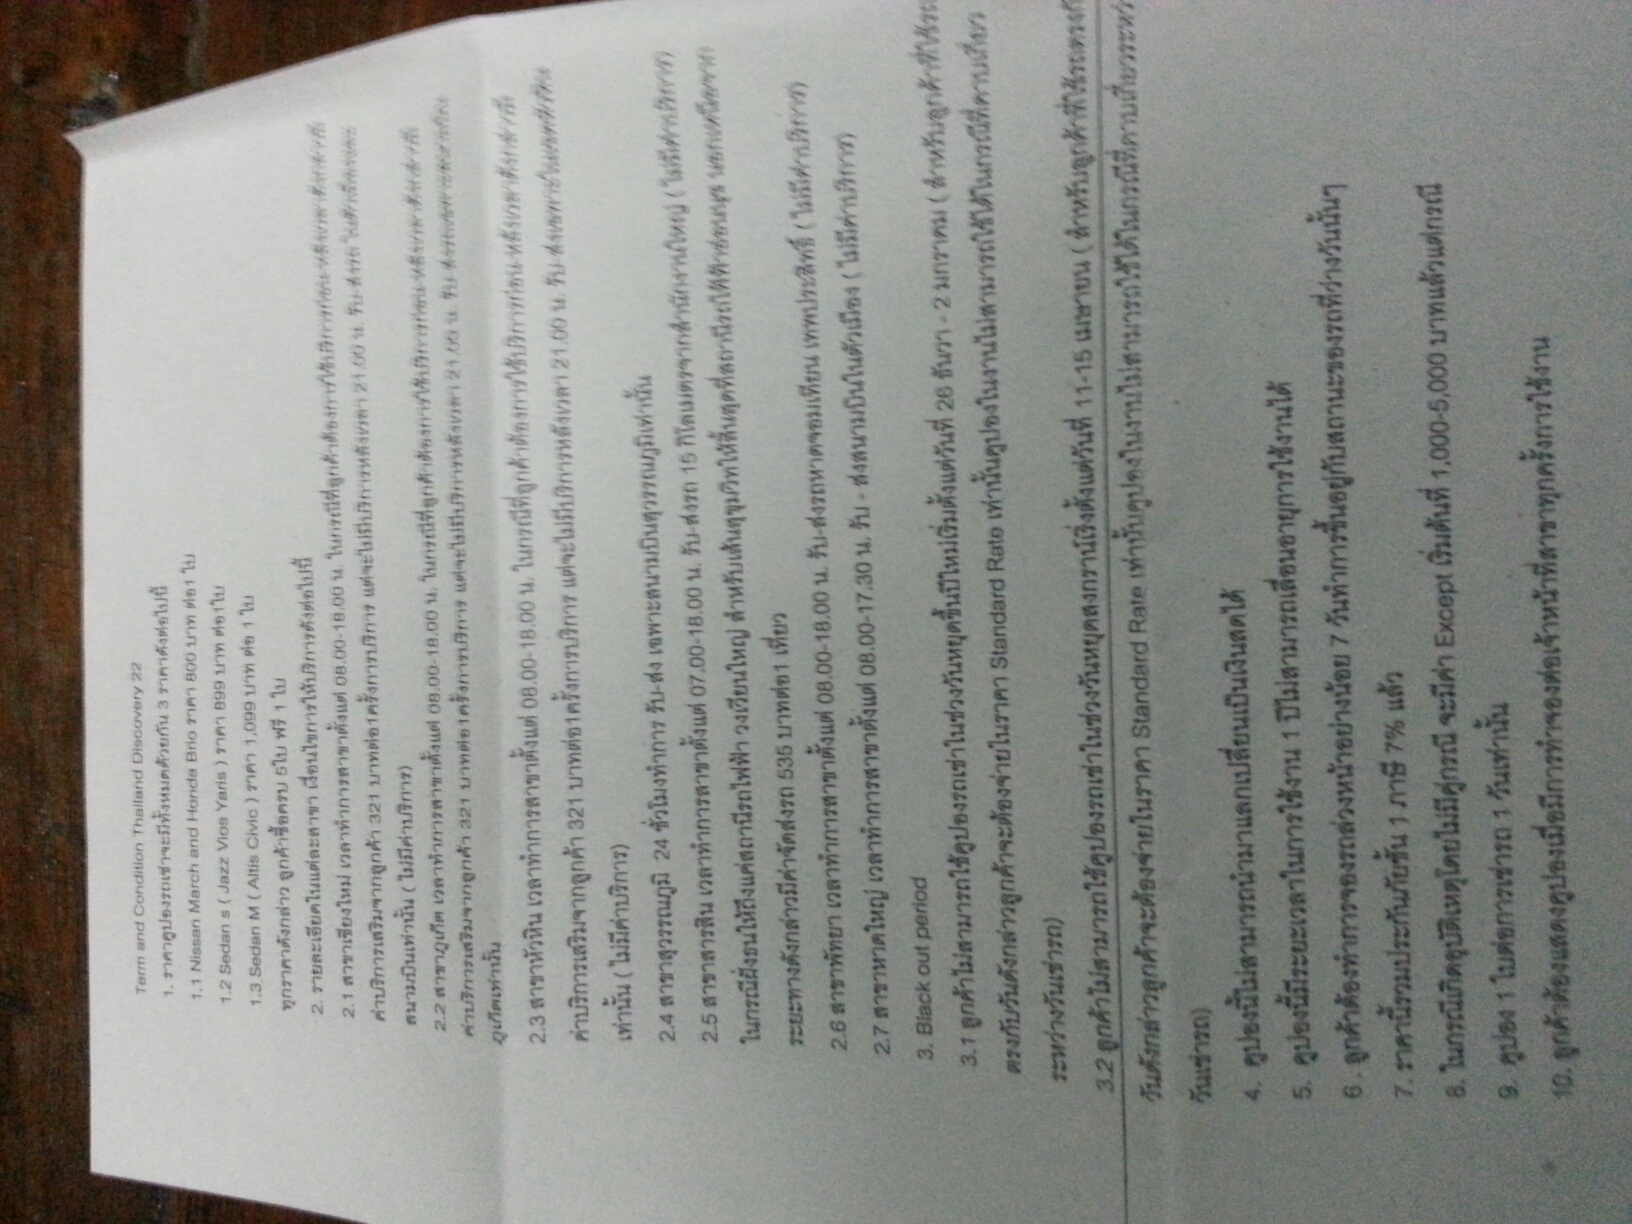 Term and Condition Thailand Discovery 22
1. ราคาคูปองรถเช่าจะมีทั้งหมดด้วยกัน 3 ราคาดังต่อไปนี้
1.1 Nissan March and Honda Brio ราคา 800 บาท ต่อ1 ใบ
1.2 Sedan s ( Jazz Vios Yaris ) ราคา 899 บาท ต่อ1ใบ
1.3 Sedan M ( Altis Civic ) ราคา 1,099 บาท ต่อ 1 ใบ
ทุกราคาดังกล่าว ลูกค้าซื้อครบ 5ใบ ฟรี 1 ใบ
2. รายละเอียดในแต่ละสาขา เงื่อนไขการให้บริการดังต่อไปนี้
2.1 สาขาเชียงใหม่ เวลาทำการสาขาตั้งแต่ 08.00-18.00 น. ในกรณีที่ลูกค้าต้องการใช้บริการก่อน-หลังเวลาดังกล่าวมี
ค่าบริการเสริมจากลูกค้า 321 บาทต่อ1ครั้งการบริการ แต่จะไม่มีบริการหลังเวลา 21.00 น. รับ-ส่งรถ
สนามบินเท่านั้น ( ไม่มีค่าบริการ)
2.2 สาขาภูเก็ต เวลาทำการสาขาตั้งแต่ 08.00-18.00 น. ในกรณีที่ลูกค้าต้องการใช้บริการก่อน-หลังเวลาดังกล่าวมี
ค่าบริการเสริมจากลูกค้า 321 บาทต่อ1ครั้งการบริการ แต่จะไม่มีบริการหลังเวลา 21.00 น. รับ-ส่งเฉพาะ
ภูเก็ตเท่านั้น
2.3 สาขาหัวหิน เวลาทำการสาขาตั้งแต่ 08.00-18.00 น. ในกรณีที่ลูกค้าต้องการใช้บริการก่อน-หลังเวลาดังกล่าวมี
ค่าบริการเสริมจากลูกค้า 321 บาทต่อ1ครั้งการบริการ แต่จะไม่มีบริการหลังเวลา 21.00 น. รับ-ส่งเฉพาะในเขตหัวหิน
เท่านั้น ( ไม่มีค่าบริการ)
2.4 สาขาสุวรรณภูมิ 24 ชั่วโมงทำการ รับ-ส่ง เฉพาะสนามบินสุวรรณภูมิเท่านั้น
2.5 สาขาสารสิน เวลาทำการสาขาตั้งแต่ 07.00-18.00 น. รับ-ส่งรถ 15 กิโลเมตรจากสำนักงานใหญ่ ( ไม่มีค่าบริการ)
ในกรณีฝั่งธนให้ถึงแค่สถานีรถไฟฟ้า วงเวียนใหญ่ สำหรับเส้นสุขุมวิทให้สิ้นสุดที่สถานีรถไฟฟ้าอ่อนนุช นอกเหนือจาก
ระยะทางดังกล่าวมีค่าจัดส่งรถ 535 บาทต่อ1 เที่ยว
2.6 สาขาพัทยา เวลาทำการสาขาตั้งแต่ 08.00-18.00 น. รับ-ส่งรถหาดจอมเทียน เทพประสิทธิ์ ( ไม่มีค่าบริการ)
2.7 สาขาหาดใหญ่ เวลาทำการสาขาตั้งแต่ 08.00-17.30 น. รับ - ส่งสนามบินในตัวเมือง ( ไม่มีค่าบริการ)
3. Black out period
3.1 ลูกค้าไม่สามารถใช้คูปองรถเช่าในช่วงวันหยุดขึ้นปีใหม่เริ่มตั้งแต่วันที่ 26 ธันวา - 2 มกราคม ( สำหรับลูกค้าที่ใช้รถ
ตรงกับวันดังกล่าวลูกค้าจะต้องจ่ายในราคา Standard Rate เท่านั้นคูปองในงานไม่สามารถใช้ได้ในกรณีที่คาบเกี่ยว
ระหว่างวันเช่ารถ)
3.2 ลูกค้าไม่สามารถใช้คูปองรถเช่าในช่วงวันหยุดสงกรานต์เริ่งตั้งแต่วันที่ 11-15 เมษายน ( สำหรับลูกค้าที่ใช้รถตรงกับ
วันดังกล่าวลูกค้าจะต้องจ่ายในราคา Standard Rate เท่านั้นคูปองในงานไม่สามารถใช้ได้ในกรณีที่คาบเกี่ยวระหว่าง
วันเช่ารถ)
4. คูปองนี้ไม่สามารถนำมาแลกเปลี่ยนเป็นเงินสดได้
5. คูปองนี้มีระยะเวลาในการใช้งาน 1 ปีไม่สามารถเลื่อนอายุการใช้งานได้
6 . ลูกค้าต้องทำการจองรถล่วงหน้าอย่างน้อย 7 วันทำการขึ้นอยู่กับสถานะของรถที่ว่างวันนั้นๆ
7. ราคานี้รวมประกันภัยชั้น 1 ภาษี 7% แล้ว
8. ในกรณีเกิดอุบัติเหตุโดยไม่มีคู่กรณี จะมีค่า Except เริ่มต้นที่ 1,000-5,000 บาทแล้วแต่กรณี
9. คูปอง 1 ใบต่อการเช่ารถ 1 วันเท่านั้น
10. ลูกค้าต้องแสดงคูปองเมื่อมีการทำจองต่อเจ้าหน้าที่สาขาทุกครั้งการใช้งาน